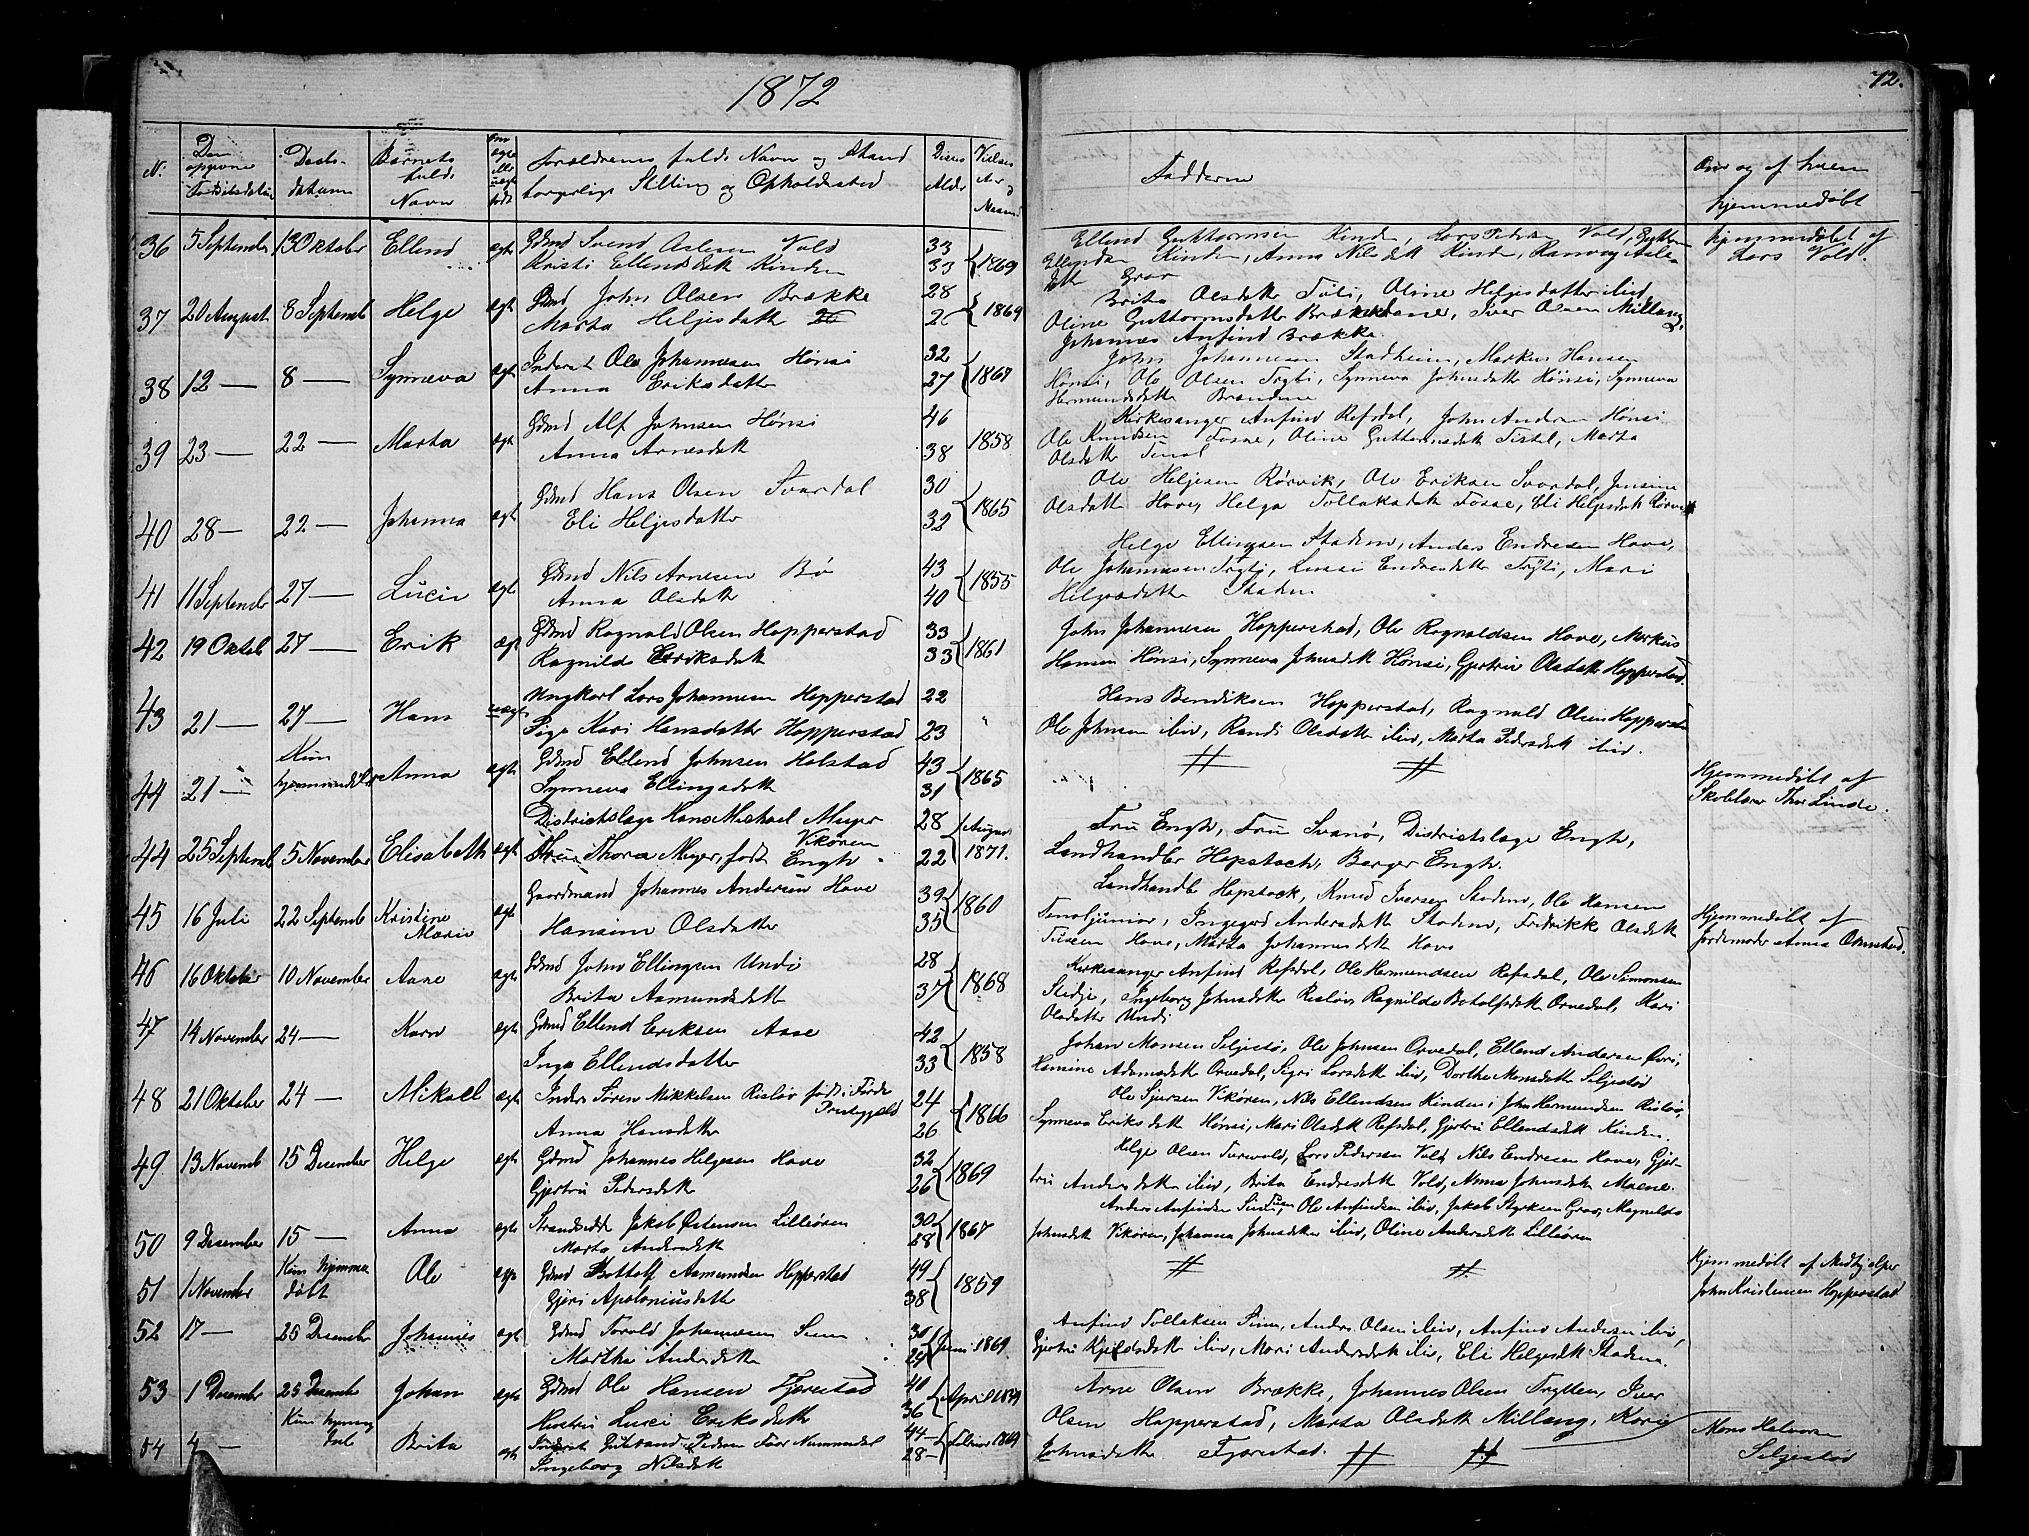 1872
72.
N.
Den opgivne Fødselsdatum
Daabsdatum
Barnets fulde Navn
Om ægte eller uægte født
Forældrenes fulde Navn og Stand
borgerlige Stilling og Opholdssted
Disses Alder
Vielses Aar og Maaned
Fadderne
Om og af hvem
hjemmedøbt
36 5 September 13 Oktober Ellend ægt Gdmd Svend Aslesen Vold 33
Kristi Ellendsdatt Kinden 33 1869
Ellend Guttormsen Kinde, Lars Pedersen Vold,
Kinden, Anna Nilsdatt Kinde,
Hjemmedøbt af
Lars Vold.
37 20 August 8 Septemb Helge ægt Gdmd John Olsen Brække 28
Marta Helgesdatt 26 1869
Brita Olsdatt Tuli, Oline Helgesdatter ibid,
Oline Guttormsdatter, Iver Olsen Millang,
Johannes Anfind Brække
38 12 — 8 — Synneva ægt Inderst Ole Johannesen Hønsi 32
Anna Eriksdatte 27 1867
John Johannesen Stadheim, Markus Hansen
Hønsi, Ole Olsen Trytti, Synneva Johnsdatte Hønsi, Synneva
Hermundsdatte
39 23 — 22 — Marta ægt Gdmd Alf Johnsen Hønsi 46
Anna Arnesdatt 38 1858
Kirkesanger Anfind Refsdal, John Andersen Hønsi
Ole Knudsen Fosse, Oline Guttormsdatt Tistel, Marta
Olsdatte Tenol
40 28 — 22 — Johanna ægt Gdmd Hans Olsen Svardal 30
Eli Helgesdatte 32 1865
Ole Helgesen Rørvik, Ole Eriksen Svardal, Jensine
Olsdatte Hove, Helga Tollaksdatt Fosse, Eli Helgesdatt Rørvik
41 11 September 27 — Lucie ægt Gdmd Nils Arnesen Bø 43
Anna Olsdatte 40 1855
Helge Ellingsen Staden, Anders Endresen Hove,
Ole Johannesen Trytti, Lussi Endresdatte Trytti, Mari
Helgesdatte Staden
42 19 Oktob 27 — Erik ægt Gdmd Ragnald Olsen Hopperstad 33
Ragnilde Eriksdatt 33 1861
John Johannesen Hopperstad, Ole Ragnaldsen Hove, Markus
Hansen Hønsi, Synneva Johnsdatt Hønsi, Gjertrue Olsdatte Hopperstad.
43 21 — 27 — Hans uægt Ungkarl Lars Johannesen Hopperstad 22
Pige Kari Hansdatter Hopperstad 23 "
Hans Bendiksen Hopperstad, Ragnald Olsen Hopperstad
Ole Johnsen ibid, Randi Olsdatte ibid, Marta Pedersdatt ibid.
44 21 — Kun hjemmedøbt Anna ægt Gdmd Ellend Johnsen Holstad 43
Synneva Ellingsdatt 31 1865
Hjemmedøbt af
Skolelærer Thor Linde.
44 25 Septemb 5 November Elisabeth ægt Districtslæge Hans Michael Meyer Vikøren 28
Frue Thora Meyer, født Engh 22 August 1871.
Fru Engh, Fru Svanø, Districtslæge Engh,
Landhandler Hopstock, Berger Engh.
45 16 Juli 22 Septemb Kristine Marie ægt Gaardmand Johannes Andersen Hove 39
Hansine Olsdatte 35 1860
Landhandle Hopstock, Knud Iversen Staden, Ole Hansen
Tenoljunior, Ingeged Andersdatt Staden, Fredrikke Olsdatt
Hove, Marta Johannesdatt Hove
Hjemmedøbt af
Jordemoder Anna Ohnstad.
46 16 Oktober 10 November Aase ægt Gdmd John Ellingsen Undi 28
Brita Aamundsdatt 37 1868
Kirkesanger Anfind Refsdal, Ole Hermundsen Refsdal, Ole Simonsen
Stedje, Ingeborg Johnsdatte Risløv, Ragnilde Botolfsdatt Orvedal, Kari
Olsdatter Undi
47 14 November 24 — Karn ægt Gdmd Ellend Eriksen Aase 42
Inga Ellendsdatter 33 1858
Johan Monsen Seljestø, Ole Johnsen Orvedal, Ellend Andersen Øvri,
Adamsdatt Orvedal, Sigri Larsdatt ibid, Dorthe Monsdatte Seljestød
48 21 Oktober 24 — Mikael ægt Inders Søren Mikkelsen Risløv født i Førde Præstegjeld 24
Anna Hansdatte 26 1866
Ole Sjursen Vikøren, Nils Ellendsen Kinden, John Hermundsen Risløv,
Synneva Eriksdatt Hønsi, Mari Olsdatt Refsdal, Gjertru Ellendsdatt Kinden.
49 13 Novemb 15 Desember Helge ægt Gdmd Johannes Helgesen Hove 32
Gjertru Pedersdatt 26 1869
Helge Olsen Turvold, Lars Pedersen Vold, Nils Endresen Hove, Gjer-
tru Andersdatte ibid, Brita Endresdatt Vold, Anna Johnsdatt
50 9 Desember 15 — Anna ægt Strandsidd Jakob Østensen Lilleøren 30
Marta Andersdatt 28 1867
Anders Anfindsen, Ole Anfindsen ibid, Jakob Styrksen Grov, Magnilda
Johnsdatt Vikøren, Johanna Johnsdatter ibid, Oline Andersdatte Lilleøren
51 1 November Kun hjemmedøbt Ole ægt Gdmd Bottolf Aamundsen Hopperstad 49
Gjøri Apoloniusdatte 38 1859
Hjemmedøbt af Medhjelper
John Kristensen Hopperstad
52 17 — 25 Desember Johannes ægt Gdmd Torvald Johannesen 30
Martha Andersdatte 29 Juni 1869
Anfind Tollaksen, Anders Olsen ibid, Anfind Andersen ibid,
Gjertru Kjeldsdatt ibid, Mari Andersdatt ibid, Eli Helgesdatt Staden.
53 1 Desember 25 Desembe Johan ægt Gdmd Ole Hansen Fjærestad 40
Hustru Lucci Eriksdatt 36 April
Arne Olsen Brække, Johannes Olsen Trytten, Iver
Olsen Hopperstad, Marta Olsdatt Millang, Kari
Johnsdatte Fjærestad.
54 4 — Kun hjemmedøbt Brita ægt Inderst Gulbrand Pedersen 44
Ingeborg Nilsdatt 28 Februar 1869
Mons Halvorsen
Seljestød